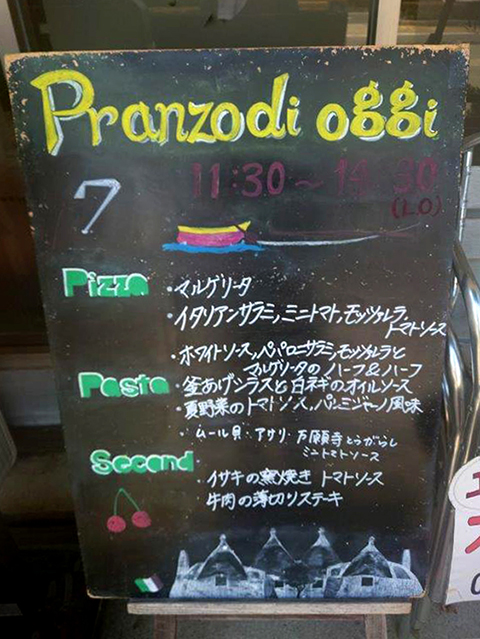 Pranzo di oggi
7
11:30～14:30
(L.O)
Pizza
・マルゲリータ
・イタリアンサラミ,ミニトマト,モッツァレラ,
トマトソース
・ホワイトソース,ペパロニサラミ,モッツァレラと
マルゲリータのハーフ&ハーフ
Pasta
・釜あげシラスと白ネギのオイルソース
・夏野菜のトマトソース,パルミジャーノ風味
・ムール貝・アサリ・万願寺とうがらし
ミニトマトソース
Second
・イサキの窯焼き トマトソース
牛肉の薄切りステーキ